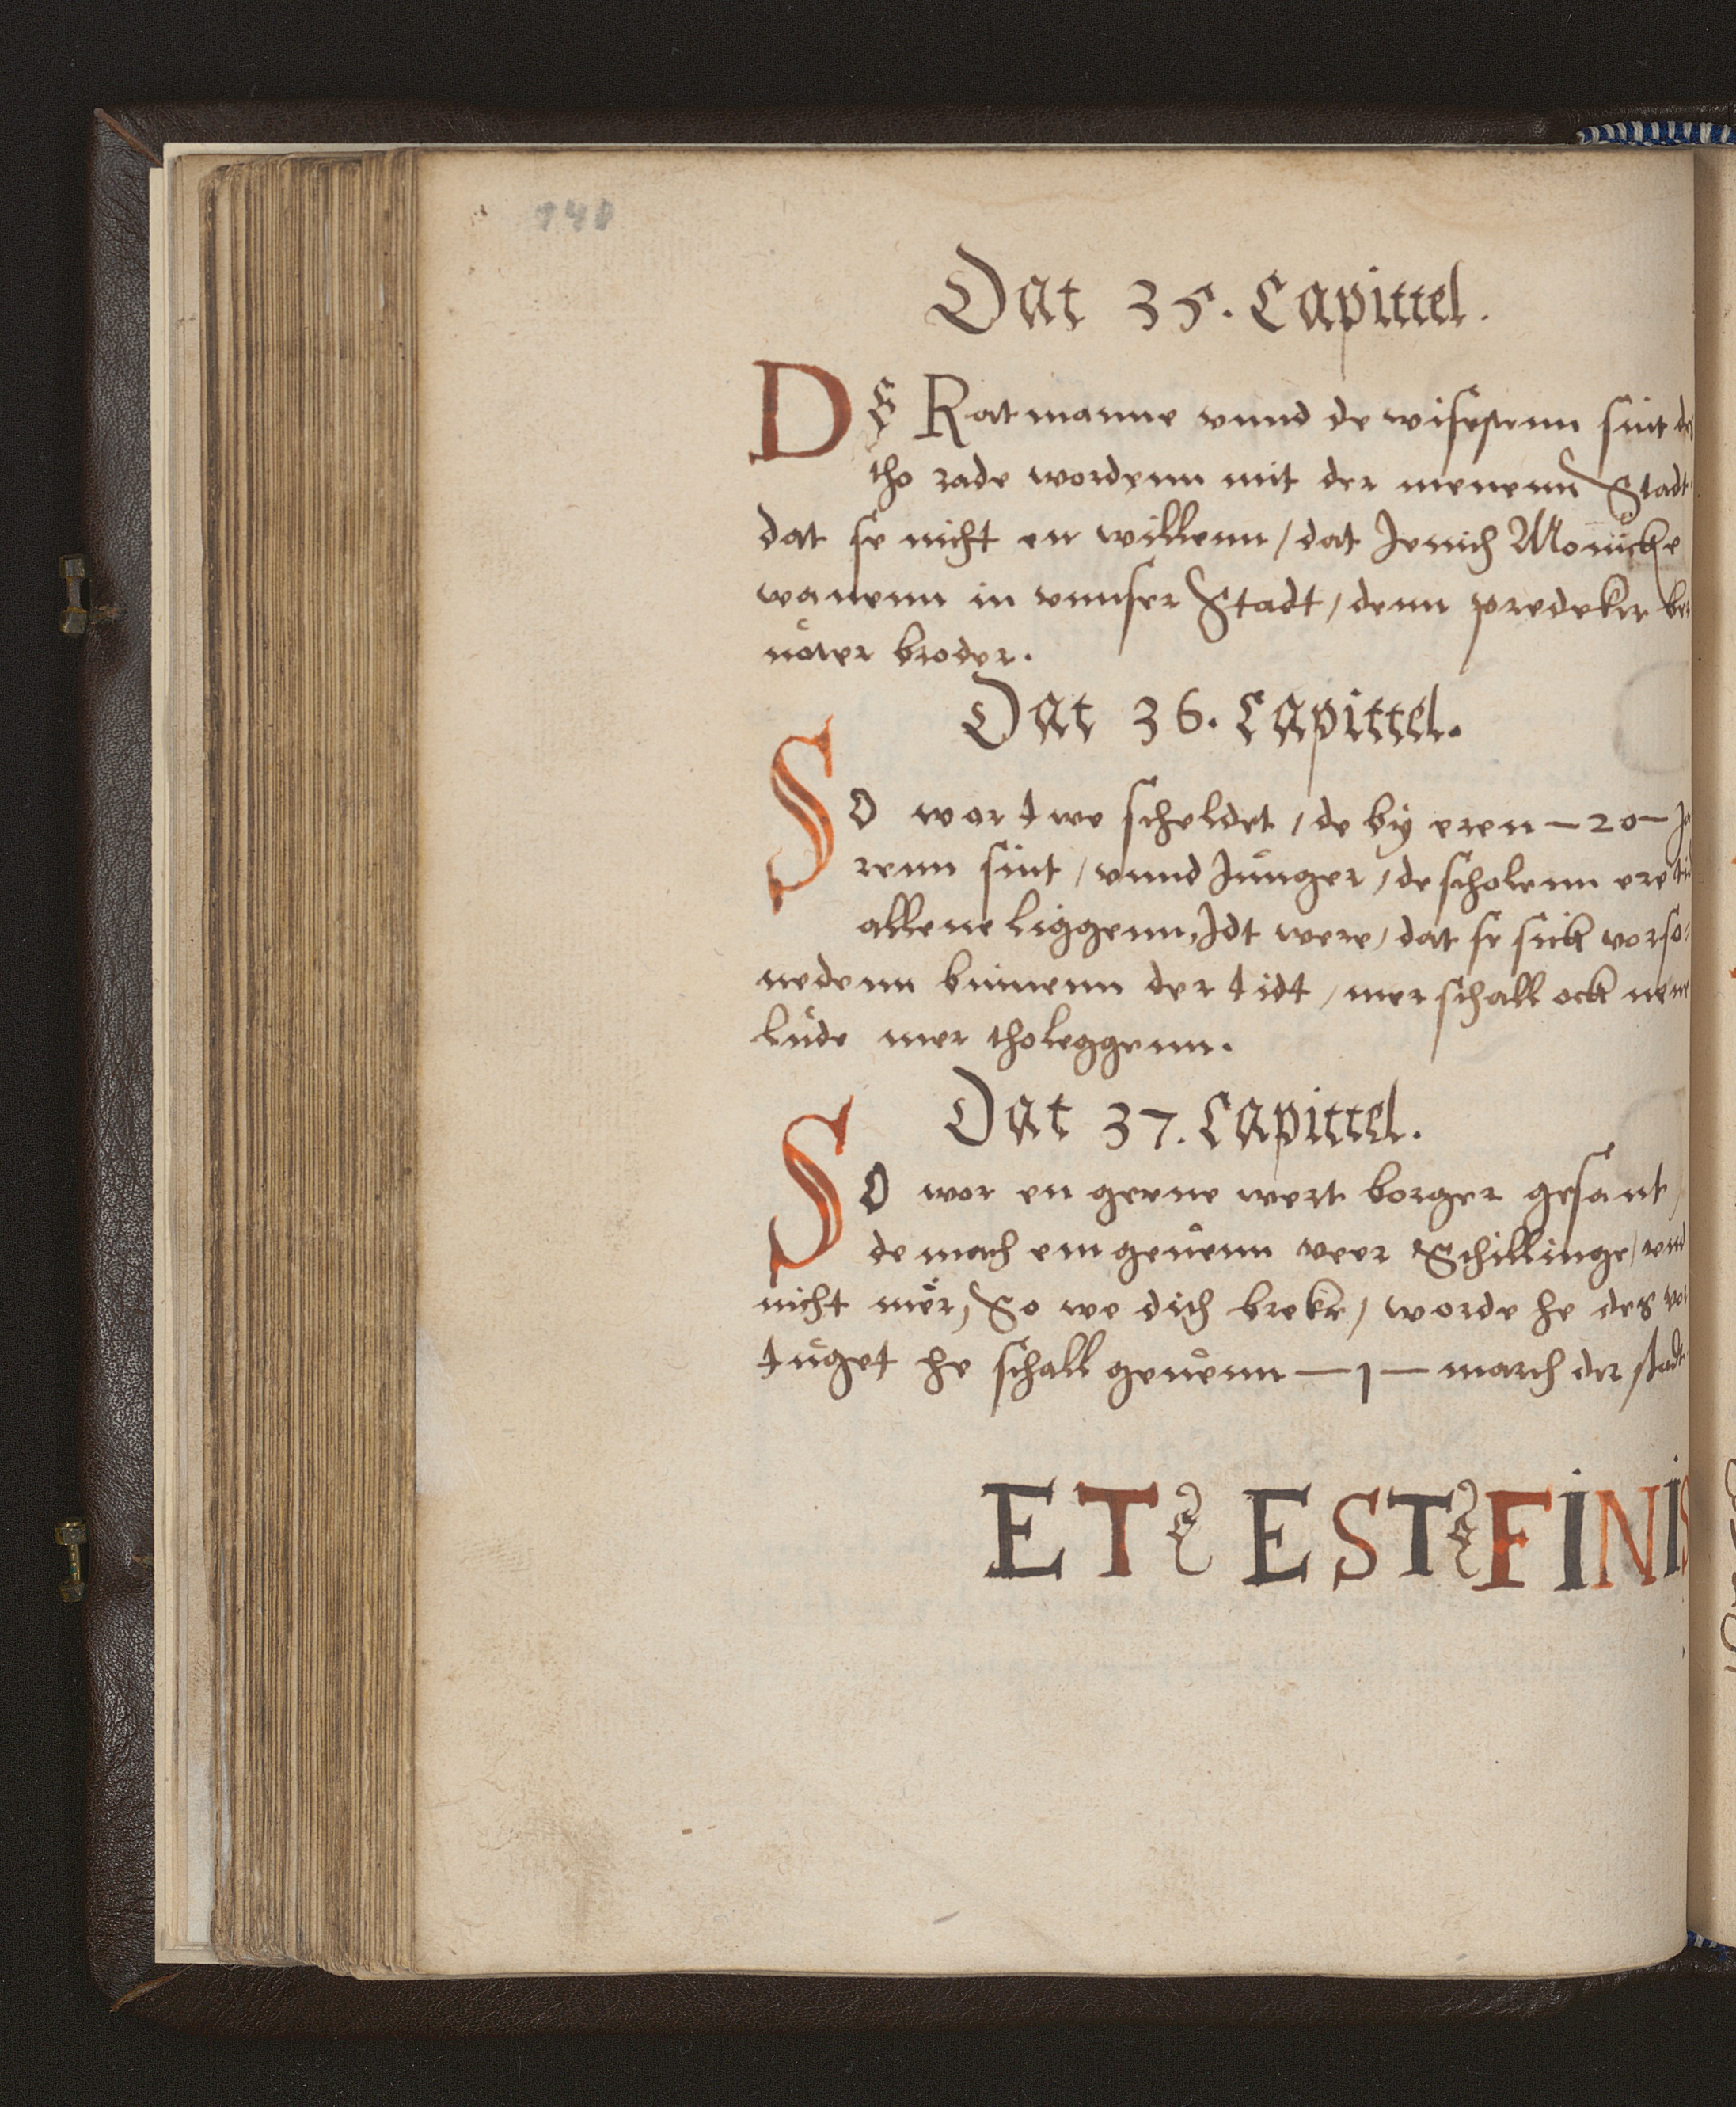 140
Dat 35. Capittel.
DE Ratmanne vnnd de wisestenn sint des
tho rade wordenn mit der menenn Stadt
dat se nicht en willenn / dat Jenich Monicke
wanenn in vnnser Stadt / denn predeker
broder.
Dat 36. Capittel.
SO wor twe scheldet / de by eren – 20 – Ja
renn sint / vnnd Junger / de scholenn ere tid
allene liggenn, Jdt were / dat se sick vorso:
nedenn binnenn der tidt / mer schall ock nene
lude mer tholeggenn.
Dat 37. Capittel.
SO wor en geene wert borger gesant /
de mach em geuenn veer Schillinge / vnd
nicht mer, So we dith breke / worde he des vor
tuget he schall geuenn – 1 – march der stadt
ET EST FINIS